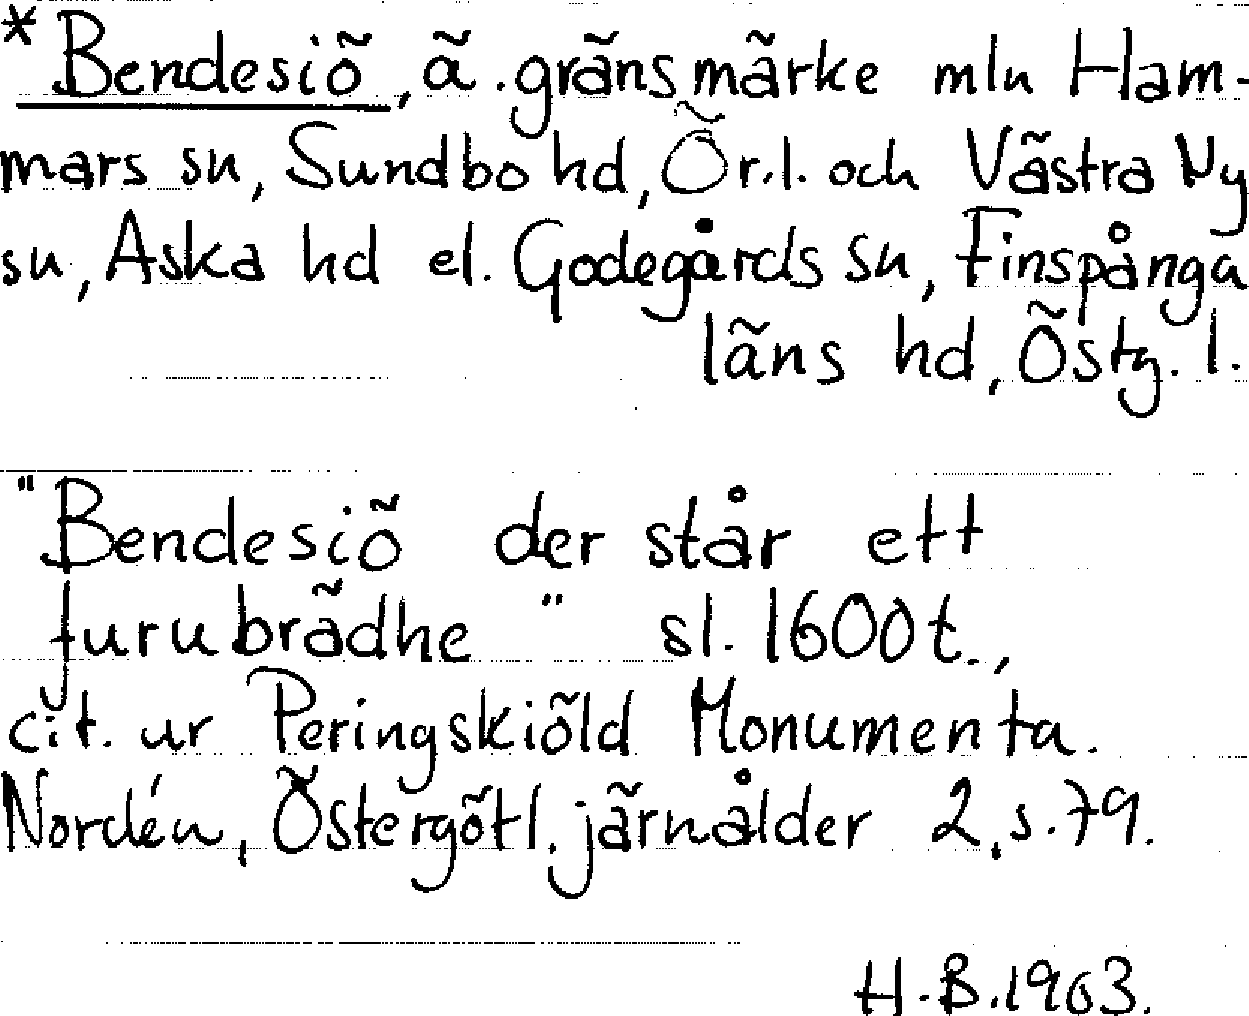 *Bendesiö, ä. gränsmärke mln Ham-
mars sn, Sundbo hd, Ör.l. och Västra Ny
sn, Aska hd el. Godegårds sn, Finspånga
läns hd, Östg. l.
"Bendesiö der står ett
furubrädhe" sl. 1600t.,
cit. ur Peringskiöld Monumenta.
Nordén, Östergötl. järnålder 2, s. 79.
H.B. 1963.